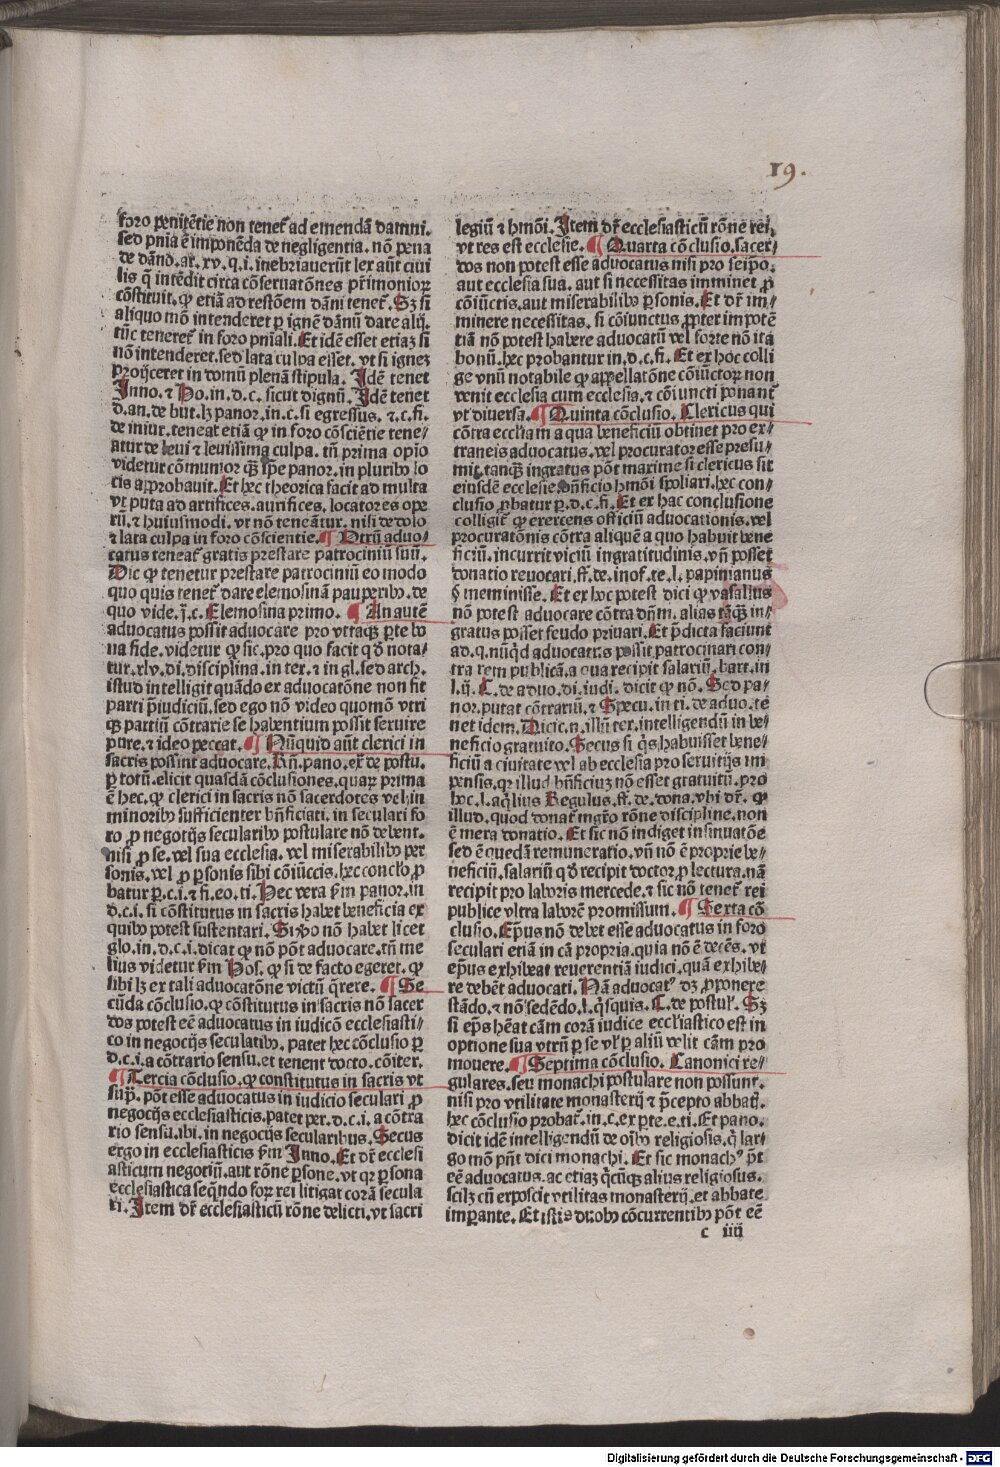 19.
foro penitẽtie non tenet᷑ ad emendã damni.
sed pnia ẽ imponẽda de negligentia. nõ pena
de dãno. ar. xv. q. i. inebriauerũt lex aũt ciui
lis q̃ intẽdit circa cõseruatões pr̃imonioꝝ
cõstituit. ꝙ etiã ad restõem dãni tenet᷑. Sꝫ si
aliquo mõ intenderet ꝑ ignẽ dãnũ dare alij.
tũc teneret᷑ in foro pniali. Et idẽ esset etiaꝫ si
nõ intenderet. sed lata culpa esset. vt si ignez
proijceret in domũ plenã stipula. Idẽ tenet
Inno. ⁊ Ho. in. d. c. sicut dignũ. Idẽ tenet
d. an. de but. lꝫ panor. in. c. si egressus. ⁊ c. fi.
de iniur. teneat etiã ꝙ in foro cõsciẽtie tene⸗
atur de leui ⁊ leuissima culpa. tñ prima opio
videtur cõmunior qꝫ ipse panor. in pluribꝰ lo
cis approbauit. Et hec theorica facit ad multa
vt puta ad artifices. aurifices. locatores ope
rũ. ⁊ huiusmodi. vt nõ teneãtur. nisi de dolo
⁊ lata culpa in foro cõscientie. ¶ Vtrũ aduo⸗
catus teneat᷑ gratis prestare patrociniũ suũ.
Dic ꝙ tenetur prestare patrociniũ eo modo
quo quis tenet᷑ dare elemosinã pauperibꝰ. de
quo vide. j. c. Elemosina primo. ¶ An autẽ
aduocatus possit aduocare pro vtraqꝫ ꝑte bo
na fide. videtur ꝙ sic. pro quo facit qð nota⸗
tur. xlv. di. disciplina. in tex. ⁊ in gl. sed arch.
istud intelligit quãdo ex aduocatõne non fit
parti p̃iudiciũ. sed ego nõ video quomõ vtri
qꝫ partiũ cõtrarie se habentium possit seruire
pure. ⁊ ideo peccat. ¶ Nũquid aũt clerici in
sacris possint aduocare. Rñ. pano. ex̃ de postu.
ꝑ totũ. elicit quasdã cõclusiones. quaꝝ prima
ẽ hec. ꝙ clerici in sacris nõ sacerdotes vel in
minoribꝰ sufficienter bñficiati. in seculari fo
ro ꝓ negotijs secularibꝰ postulare nõ debent.
nisi ꝓ se. vel sua ecclesia. vel miserabilibꝰ per
sonis. vel ꝓ ꝑsonis sibi cõiũctis. hec conclo ꝓ
batur ꝑ. c. i. ⁊ fi. eo. ti. Hec vera ẽm panor. in
d. c. i. si cõstitutus in sacris habet beneficia ex
quibꝰ potest sustentari. Si ꝟo nõ habet licet
glo. in. d. c. i. dicat ꝙ nõ põt aduocare. tñ me
lius videtur ẽm Hos. ꝙ si de facto egeret. ꝙ
sibi lꝫ ex tali aduocatõne victũ q̃rere. ¶ Se
cũda cõclusio. ꝙ cõstitutus in sacris nõ sacer
dos potest eẽ aduocatus in iudicõ ecclesiasti⸗
co in negocijs secularibꝰ. patet hec cõclusio ꝑ
d. c. i. a cõtrario sensu. et tenent docto. cõiter.
¶ Tercia cõclusio. ꝙ constitutus in sacris vt
supͣ. põt esse aduocatus in iudicio seculari ꝓ
negocijs ecclesiasticis. patet per. d. c. i. a cõtra
rio sensu. ibi. in negocijs secularibus. Secus
ergo in ecclesiasticis ẽm Inno. Et dr̃ ecclesi
asticum negotiũ. aut rõne ꝑsone. vt qꝛ ꝑsona
ecclesiastica seq̃ndo foꝝ rei litigat corã secula
ri. Item dr̃ ecclesiasticũ rõne delicti. vt sacri
legiũ ⁊ hmõi. Item dr̃ ecclesiasticũ rõne rei.
vt res est ecclesie. ¶ Quarta cõclusio. sacer⸗
dos non potest esse aduocatus nisi pro seipõ.
aut ecclesia sua. aut si necessitas imminet ꝓ
cõiũctis. aut miserabilibꝰ ꝑsonis. Et dr̃ im⸗
minere necessitas. si cõiunctus ꝓpter impotẽ
tiã nõ potest habere aduocatũ vel forte nõ ita
bonũ. hec probantur in. d. c. fi. Et ex hoc colli
ge vnũ notabile ꝙ appellatõne cõiũctoꝝ non
venit ecclesia cum ecclesia. ⁊ cõiuncti ponant᷑
vt diuersa. ¶ Quinta cõclusio. Clericus qui
cõtra eccliam a qua beneficiũ obtinet pro ex⸗
traneis aduocatus. vel procurator esse presu⸗
mit. tanqꝫ ingratus põt maxime si clericus sit
eiusdẽ ecclesie. bñficio hmõi spoliari. hec con⸗
clusio ꝓbatur ꝑ. d. c. fi. Et ex hac conclusione
colligit᷑ ꝙ exercens officiũ aduocationis. vel
procuratõnis cõtra aliquẽ a quo habuit bene
ficiũ. incurrit viciũ ingratitudinis. vñ posset
donatio reuocari. ff. de. inof. te. l. papinianus
§ meminisse. Et ex hoc potest dici ꝙ vasallus
nõ potest aduocare cõtra dñm. alias tãqꝫ in⸗
gratus posset feudo priuari. Et p̃dicta faciunt
ad. q. nũqd aduocatus possit patrocinari con⸗
tra rem publicã. a qua recipit salariũ. bart. in
l. ij. C. de aduo. di. iudi. dicit ꝙ nõ. Sed pa⸗
nor. putat cõtrariũ. ⁊ Specu. in ti. de aduo. te
net idem. Dicit. n. illũ tex. intelligendũ in be⸗
neficio gratuito. Secus si q̃s habuisset bene⸗
ficiũ a ciuitate vel ab ecclesia pro seruitijs im
pensis. qꝛ illud bñficiuꝫ nõ esset gratuitũ. pro
hoc. l. aq̃lius Regulus. ff. de. dona. vbi dr̃. ꝙ
illud. quod donat᷑ mgr̃o rõne discipline. non
ẽ mera donatio. Et sic nõ indiget insinuatõe
sed ẽ quedã remuneratio. vñ nõ ẽ proprie be⸗
neficiũ. salariũ qð recipit doctor ꝓ lectura. nã
recipit pro laboris mercede. ⁊ sic nõ tenet᷑ rei
publice vltra laborẽ promissum. ¶ Sexta cõ
clusio. Ep̃us nõ debet esse aduocatus in foro
seculari etiã in cã propria. quia nõ ẽ decẽs. vt
ep̃us exhibeat reuerentiã iudici. quã exhibe⸗
re debẽt aduocati. Nã aduocatꝰ dꝫ ꝓponere
stãdo. ⁊ nõ sedẽdo. l. q̃squis. C. de postul'. Sꝫ
si ep̃s hẽat cãm corã iudice eccl̃iastico est in
optione sua vtrũ ꝑ se vl' ꝑ aliũ velit cãm pro
mouere. ¶ Septima cõclusio. Canonici re⸗
gulares. seu monachi postulare non possunt.
nisi pro vtilitate monasterij ⁊ p̃cepto abbatis.
hec cõclusio probat᷑. in. c. ex ꝑte. e. ti. Et pano.
dicit idẽ intelligendũ de oĩbꝰ religiosis. q̃ lar⸗
go mõ pñt dici monachi. Et sic monachꝰ põt
eẽ aduocatus. ac etiaꝫ q̃cũqꝫ alius religiosus.
scilꝫ cũ exposcit vtilitas monasterij. et abbate
imꝑante. Et istis duobꝰ cõcurrentibꝰ põt eẽ
c iiij
Digitalisierung gefördert durch die Deutsche Forschungsgemeinschaft - DFG